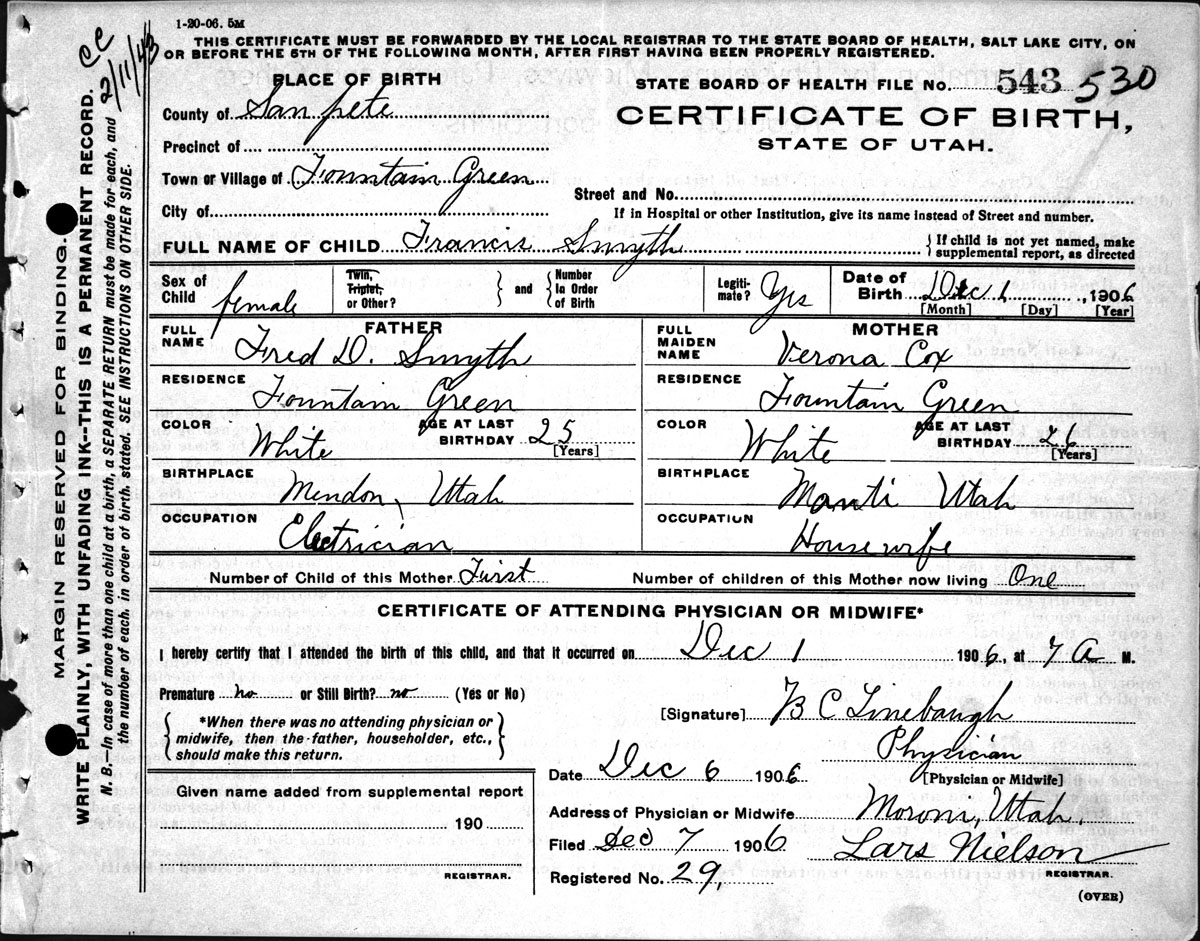 1-20-06. 5M
THIS CERTIFICATE MUST BE FORWARDED BY THE LOCAL REGISTRAR TO THE STATE BOARD OF HEALTH, SALT LAKE CITY, ON
OR BEFORE THE 5TH OF THE FOLLOWING MONTH, AFTER FIRST HAVING BEEN PROPERLY REGISTERED.
CC
2/11/43
MARGIN RESERVED FOR BINDING.
WRITE PLAINLY, WITH UNFADING INK--THIS IS A PERMANENT RECORD.
N. B.—In case of more than one child at a birth, a SEPARATE RETURN must be made for each, and
the number of each, in order of birth, stated. SEE INSTRUCTIONS ON OTHER SIDE.
PLACE OF BIRTH
County of Sanpete
Precinct of
Town or Village of Fountain Green
City of
STATE BOARD OF HEALTH FILE No. 543 530
CERTIFICATE OF BIRTH,
STATE OF UTAH.
Street and No.
If in Hospital or other Institution, give its name instead of Street and number.
FULL NAME OF CHILD Francis Smyth
If child is not yet named, make
supplemental report, as directed
Sex of Child female
Twin, Triplet, or Other? and Number In Order of Birth
Legiti-mate? Yes
Date of Birth Dec 1, 1906
[Month] [Day] [Year]
FATHER
FULL NAME Fred D. Smyth
RESIDENCE Fountain Green
COLOR White AGE AT LAST BIRTHDAY 25 [Years]
BIRTHPLACE Mendon, Utah
OCCUPATION Electrician
MOTHER
FULL MAIDEN NAME Verona Cox
RESIDENCE Fountain Green
COLOR White AGE AT LAST BIRTHDAY 26 [Years]
BIRTHPLACE Manti Utah
OCCUPATION Housewife
Number of Child of this Mother First Number of children of this Mother now living One
CERTIFICATE OF ATTENDING PHYSICIAN OR MIDWIFE*
I hereby certify that I attended the birth of this child, and that it occurred on Dec 1 1906, at 7 A M.
Premature no or Still Birth? no (Yes or No)
*When there was no attending physician or
midwife, then the father, householder, etc.,
should make this return.
[Signature] B C Linebaugh
Physician
[Physician or Midwife]
Date Dec 6 1906
Given name added from supplemental report
190
REGISTRAR.
Address of Physician or Midwife Moroni, Utah.
Filed Dec 7 1906 Lars Nielson
REGISTRAR.
Registered No. 29,
(OVER)